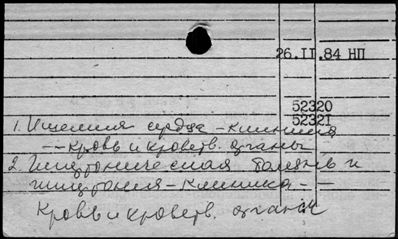 26.II.84 НП
52320
52321
1. Ишемия сердца - клиника
-- Кровь и кроветв. органы
2. Гипертоническая болезнь и
гипертония - Клиника - -
Кровь и кроветв. органы